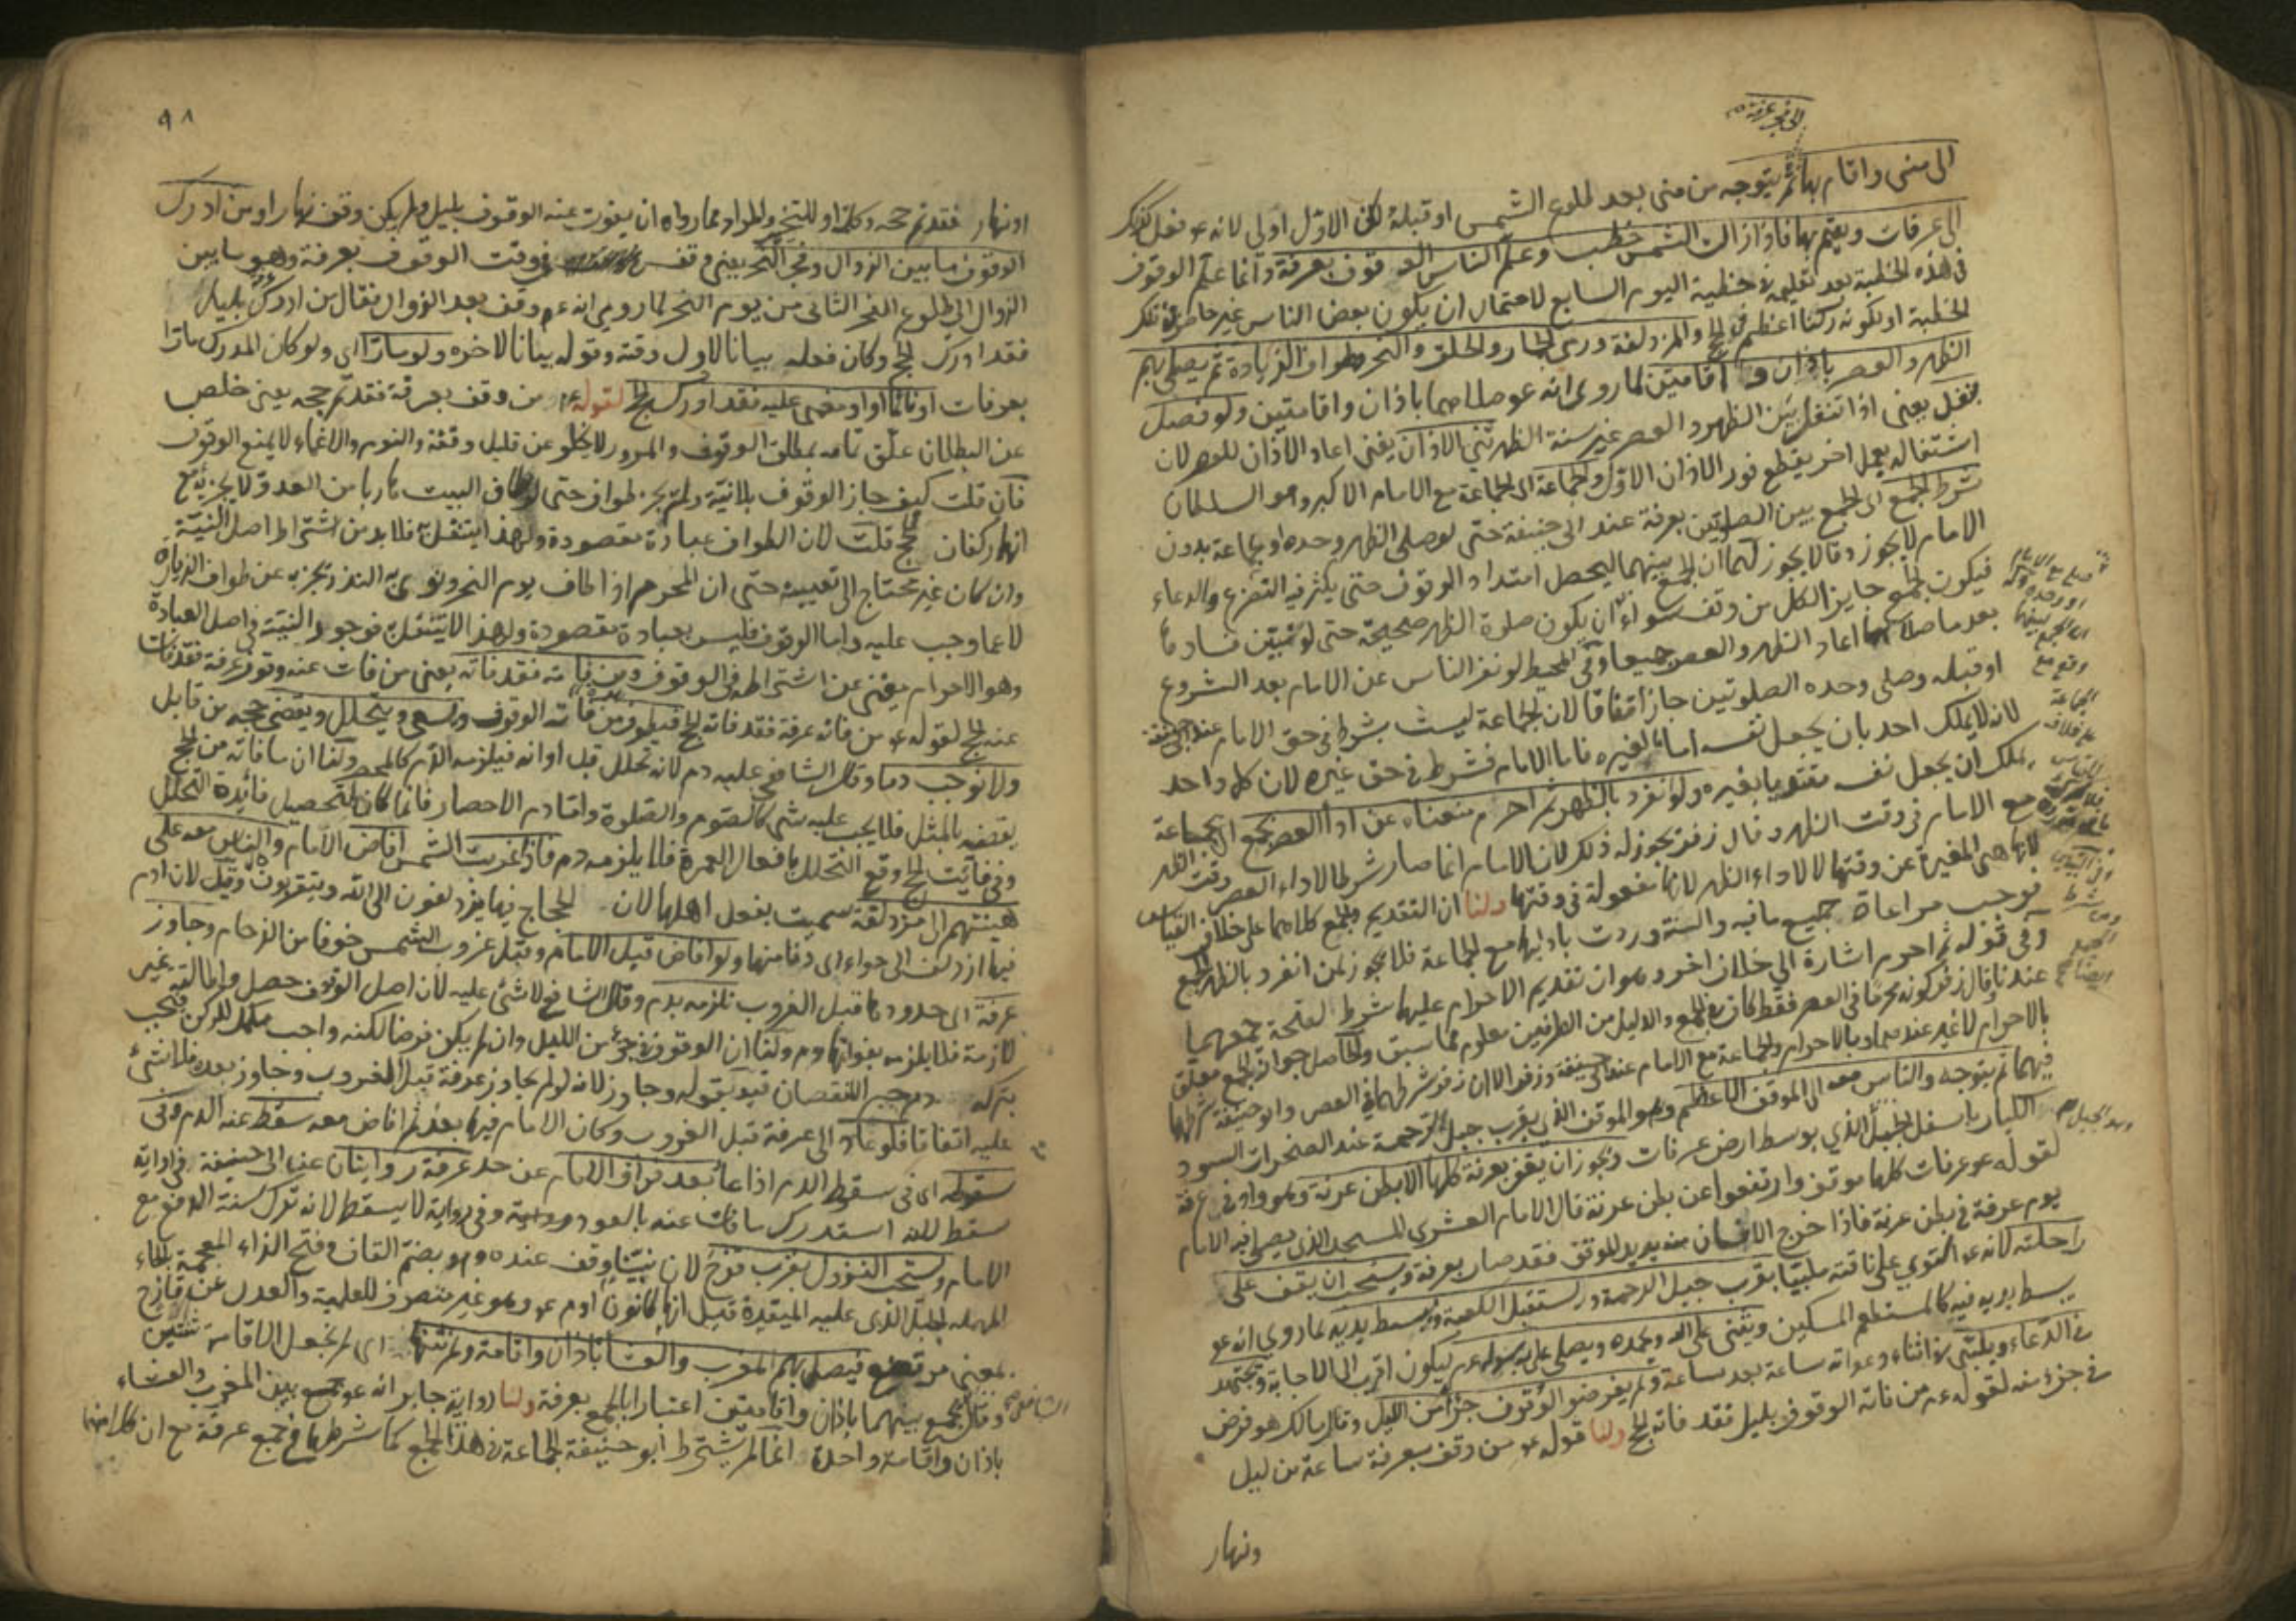 الى فجر عرفة
الى منى واقام بها ثم يتوجه من منى بعد طلوع الشمس او قبله لكن الاول اولى لانه عم فعل كذلك
الى عرفات ويقيم بها فاذا زالت الشمس خطب وعلم الناس الوقوف بعرفة وانما علم الوقوف
في هذه الخطبة بعد تعليمه في خطبة اليوم السابع لاحتمال ان يكون بعض الناس غير حاضر في تلك
الخطبة او لكونه ركنا اعظم في الحج والمزدلفة ورمي الجمار والحلق والنحر وطواف الزيارة ثم يصلى بهم
الظهر والعصر باذان و اقامتين لما روى انه عم صلاهما باذان واقامتين ولو فصل
بنفل يعنى اذا تنفل بين الظهر والعصر غير سنة الظهر ثنى الاذان يعنى اعاد الاذان للعصر لان
اشتغاله بعمل اخر يقطع فور الاذان الاول والجماعة اى الجماعة مع الامام الاكبر وهو السلطان
شرط الجمع اى الجمع بين الصلوتين بعرفة عند ابى حنيفة حتى لو صلى الظهر وحده او بجماعة بدون
الامام لا يجوز وقالا يجوز لهما ان الجمع بينهما ليحصل امتداد الوقوف حتى يكثر فيه التضرع والدعاء
فيكون الجمع جايز الكل من وقف سواء ان يكون صلوة الظهر صحيحة حتى لو تبين فساد ما
بعد ما صلاهما اعاد الظهر والعصر جميعا وفي المحيط لو نفر الناس عن الامام بعد الشروع
او قبله وصلى وحده الصلوتين جاز اتفاقا لان الجماعة ليست بشرط في حق الامام عند ابى حنيفة
لانه لا يملك احد بان يجعل نفسه اماما لغيره فاما الامام فشرط في حق غيره لان كل واحد
يملك ان يجعل نفسه مقتديا بغيره ولو انفرد بالظهر ثم احرم منعناه عن اداء العصر بجمع اى بجماعة
مع الامام في وقت الظهر وقال زفر يجوز له ذلك لان الامام انما صار شرطا لاداء العصر وقت الظهر
لانها هى المغيرة عن وقتها لا لاداء الظهر لانها مفعولة في وقتها ولنا ان التقديم والجمع كلاهما على خلاف القياس
فوجب مراعاة جميع ما فيه والسنة وردت باداءها مع الجماعة فلا يجوز لمن انفرد بالظهر الجمع
وفي قوله ثم احرم اشارة الى خلاف اخر وهو ان تقديم الاحرام عليها شرط لصحة جمعهما
عندنا وقال زفر كونه محرما في العصر فقط كاف في الجمع والدليل من الطرفين معلوم مما سبق والحاصل جواز الجمع معلق
بالاحرام لا غير عندهما وبالاحرام والجماعة مع الامام عند ابى حنيفة وزفر الا ان زفر شرطهما في العصر وابو حنيفة شرطها
فيهما ثم يتوجه والناس معه الى الموقف الاعظم وهو الموقف الذى بقرب جبل الرحمة عند الصخرات السود
الكبار باسفل الجبل الذي بوسط ارض عرفات ويجوز ان يقف بعرفة كلها الا بطن عرنة وهو واد في عرفة
لقوله عم عرفات كلها موقف وارتفعوا عن بطن عرنة قال الامام المسجد الذى يصلى فيه الامام
يوم عرفة في بطن عرنة فاذا خرج الانسان منه يريد للوقوف فقد صار بعرفة ويستحب ان يقف على
راحلته لانه عم على ناقته ملبيا بقرب جبل الرحمة ويستقبل الكعبة ويبسط يديه لما روي انه عم
بسط يديه فيه كالمستطعم المسكين ويثنى على الله ويحمده ويصلى على رسوله عم ليكون اقرب الى الاجابة ويجتهد
في الدعاء ويلبى في اثناء دعواته ساعة بعد ساعة ولم يفرضوا الوقوف جزأ من الليل وقال مالك هو فرض
في جزء منه لقوله عم من فاته الوقوف بليل فقد فاته الحج ولنا قوله عم من وقف بعرفة ساعة من ليل
ونهار
٩٨
او نهار فقد تم حجه وكلمة او للتخيير والمراد مما رواه ان يفوت عنه الوقوف بليل ولم يكن وقف نهارا ومن ادرك
الوقوف ما بين الزوال وفجر النحر يعنى وقف في وقت الوقوف بعرفة وهو ما بين
الزوال الى طلوع الفجر الثانى من يوم النحر لما روى انه عم وقف بعد الزوال فقال من ادرك عرفة بليل
فقد ادرك الحج وكان فعله بيانا لاول وقته وقوله بيانا لاخره ولو مارا اى ولو كان المدرك مارا
بعرفات او نائما او مغمى عليه فقد ادرك الحج لقوله عم من وقف بعرفة فقد تم حجه يعنى خلص
عن البطلان علق تمامه بمطلق الوقوف والمرور لا يخلو عن قليل وقفة والنوم والاغماء لا يمنع الوقوف
فان قلت كيف جاز الوقوف بلا نية ولم يجز طواف حتى لو طاف البيت هاربا من العدو لا يجزيه مع
انهما ركنان للحج قلت لان الطواف عبادة مقصودة ولهذا يتنفل به فلا بد من اشتراط اصل النية
وان كان غير محتاج الى تعيينه حتى ان المحرم اذا طاف يوم النحر ونوى به النذر يجزيه عن طواف الزيارة
لا عما وجب عليه واما الوقوف فليس بعبادة مقصودة ولهذا لا يتنفل به فوجود النية في اصل العبادة
وهو الاحرام يغنى عن اشتراطه في الوقوف ومن فاته فقد فاته يعنى من فات عنه وقوف عرفة فقد فات
عنه الحج لقوله عم من فاته عرفة فقد فاته الحج فيطوف من فاته الوقوف ويسعى ويتحلل ويقضى حجه من قابل
ولا نوجب دما وقال الشافعى عليه دم لانه تحلل قبل اوانه فيلزمه الدم كالمحصر ولنا ان ما فاته من الحج
يقضيه بالمثل فلا يجب عليه شى كالصوم والصلوة واما دم الاحصار فانما كان لتحصيل فائدة التحلل
وفي فائت الحج وقع التحلل بافعال العمرة فلا يلزمه دم فاذا غربت الشمس افاض الامام والناس معه على
هينتهم الى مزدلفة سميت بفعل اهلها لان الحجاج فيها يزدلفون الى الله ويتقربون وقيل لان ادم
فيها ازدلف الى حواء اى دنا منها ولو افاض قبل الامام وقبل غروب الشمس خوفا من الزحام وجاوز
عرفة اى حدودها قبل الغروب نلزمه بدم وقال الشافعى لا شئ عليه لان اصل الوقوف حصل واطالته غير
لازمة فلا يلزمه بفواتها دم ولنا ان الوقوف في جزء من الليل وان لم يكن فرضا لكنه واجب مكمل للركن فيجب
بتركه دم جبر النقصان قيد بقوله وجاوز لانه لو لم يجاوز عرفة قبل الغروب وجاوز بعده فلا شئ
عليه اتفاقا فلو عاد الى عرفة قبل الغروب وكان الامام فيها بعد ثم افاض معه سقط عنه الدم وفى
سقوطه اى فى سقوط الدم اذا عاد بعد فراق الامام عن حد عرفة روايتان عن ابى حنيفة فى رواية
سقط لانه استدرك ما فات عنه بالعود وفى رواية لا يسقط لانه ترك سنة الدفع مع
الامام ويستحب النزول بقرب قزح لان نبينا وقف عنده وهو بضم القاف وفتح الزاء المعجمة والحاء
المهملة الجبل الذى عليه الميقدة قيل انها كانون ادم عم وهو غير منصرف للعلمية والعدل عن قازح
بمعنى مرتفع فيصلى بهم المغرب والعشاء باذان واقامة ولم نثنها اى لم نجعل الاقامة ثنتين
وقال الشافعى يجمع بينهما باذان واقامتين اعتبارا بالجمع بعرفة ولنا رواية جابر انه عم جمع بين المغرب والعشاء
باذان واقامة واحدة انما لم يشترط ابو حنيفة الجماعة في هذا الجمع كما شرطها في جمع عرفة مع ان كلا منهما